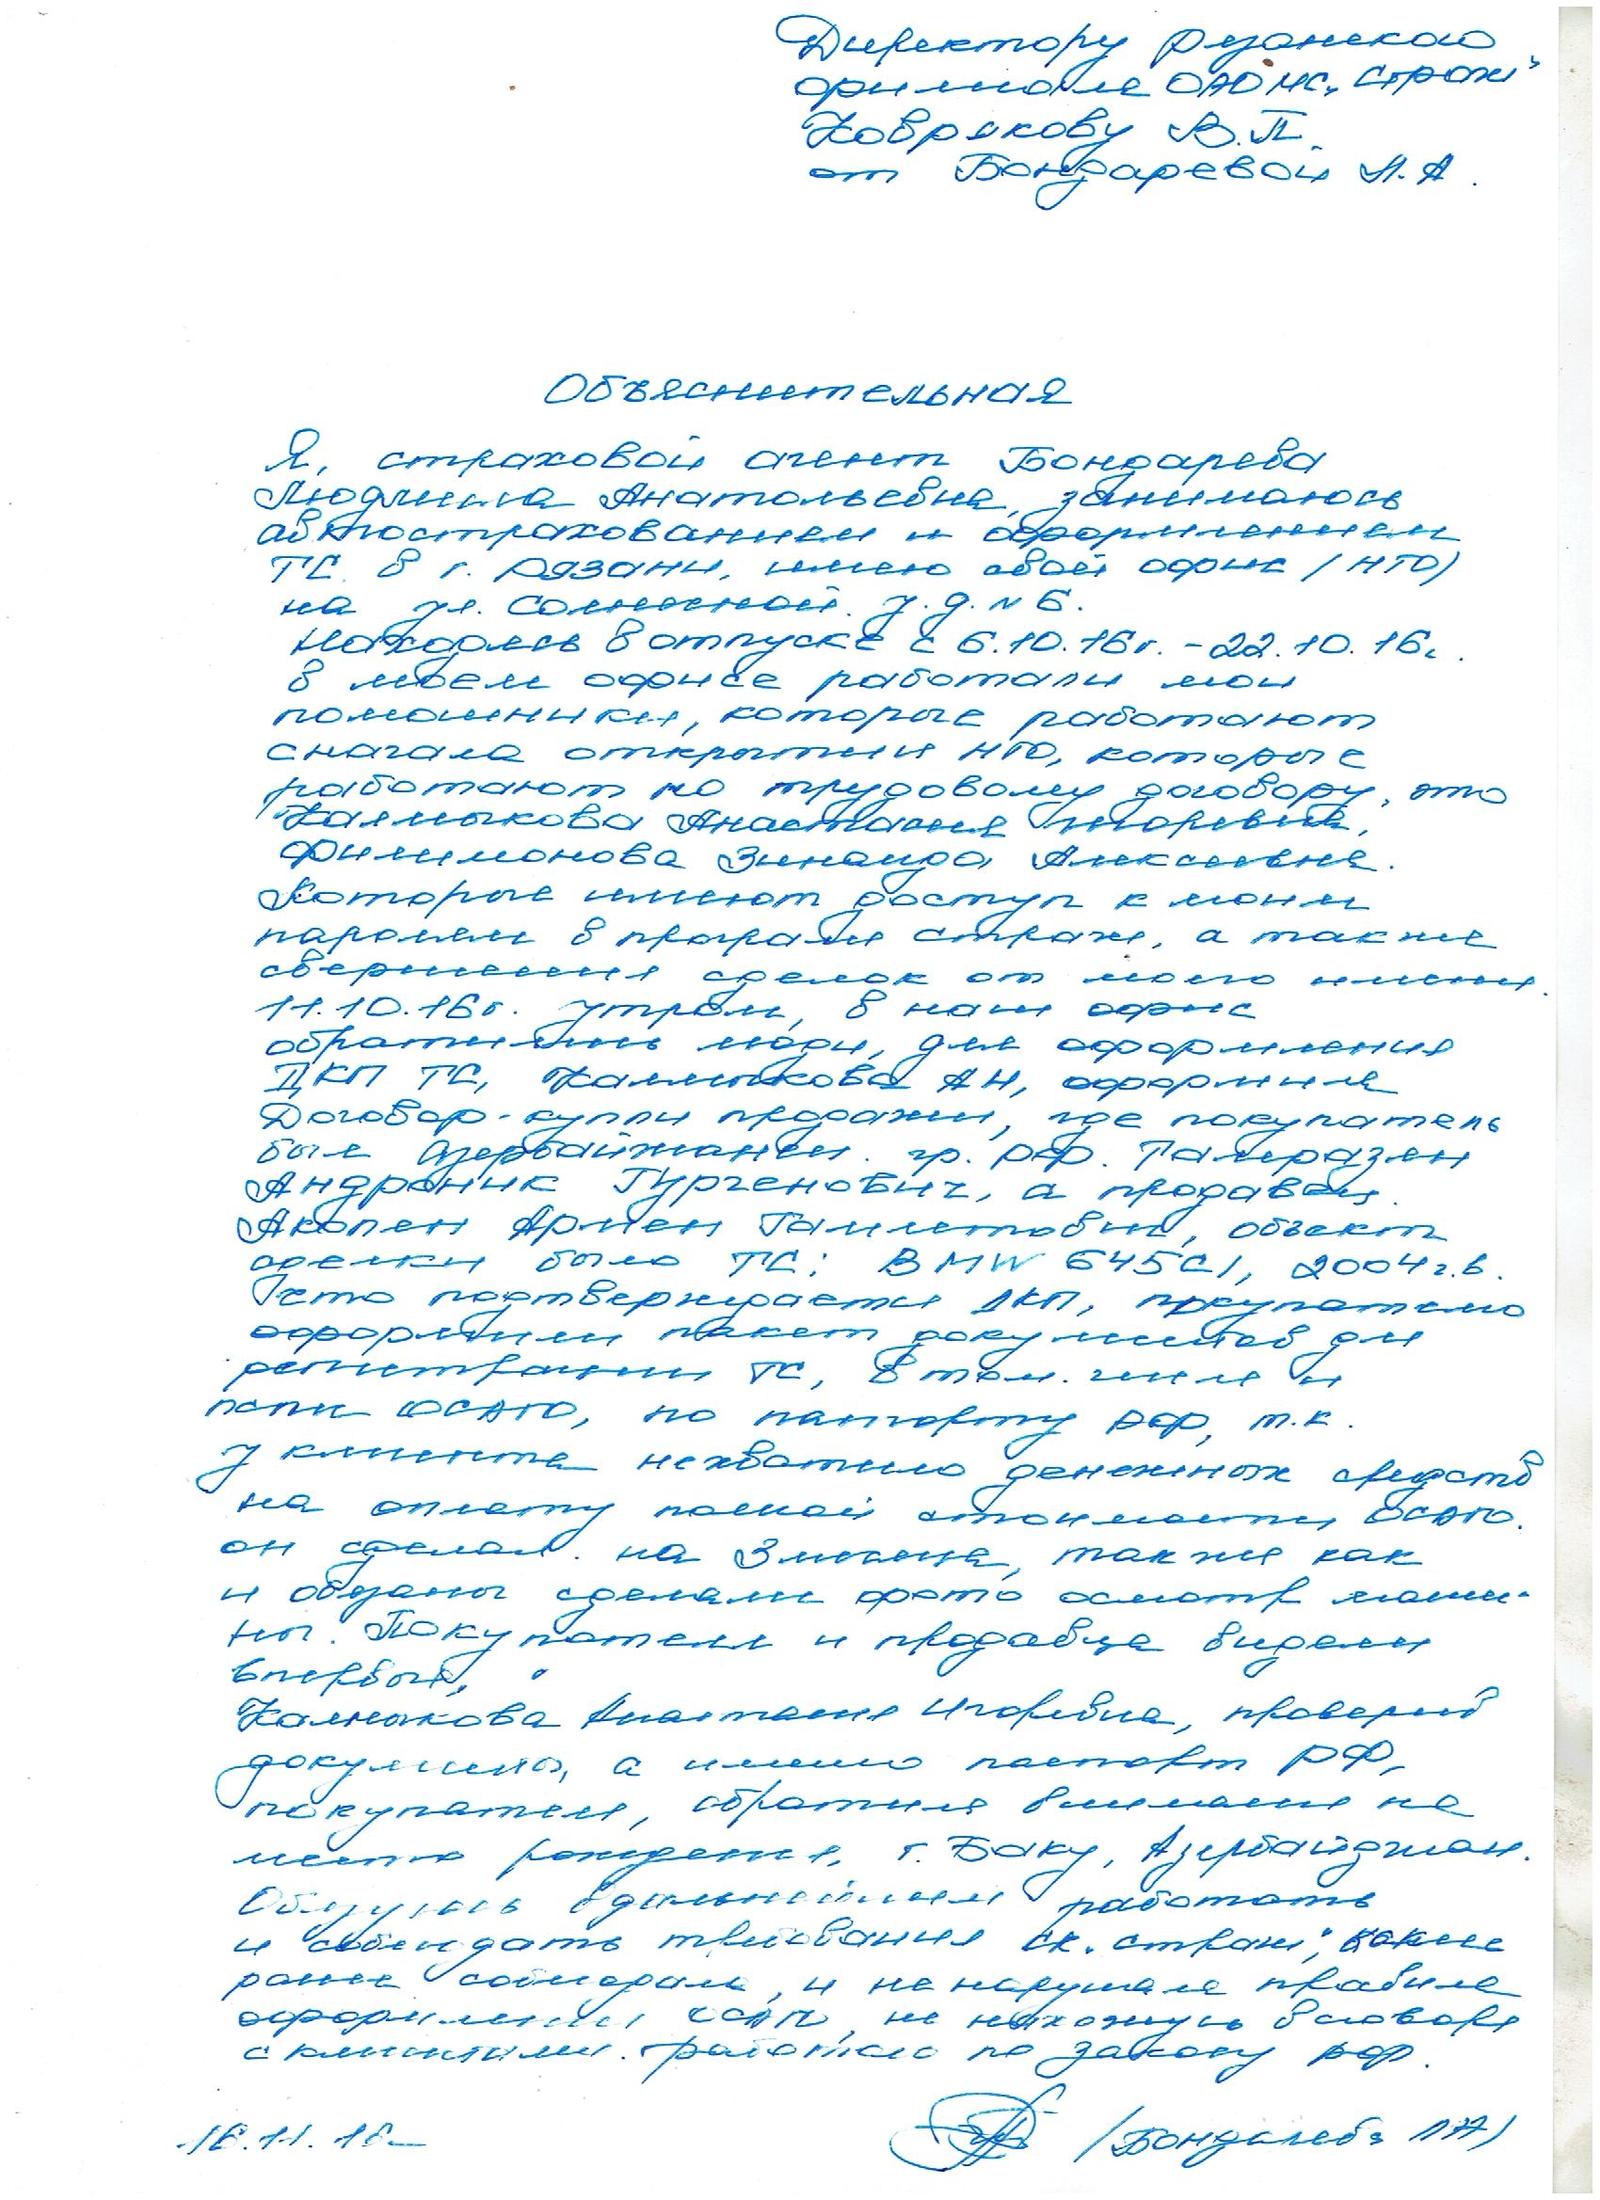 Директору рязанского
филиала ОАО МСК "Страж"
Ховрякову В.П.
от Бондаревой Л.А.
Объяснительная
Я, страховой агент Бондарева
Людмила Анатольевна, занимаюсь
автострахованием и оформлением
ТС в г. Рязани, имею свой офис (НТО)
на ул. Солнечной. у.д. № 6.
Находясь в отпуске с 6.10.16г. - 22.10.16г.
в моем офисе работали мои
помошники, которые работают
сначала открытия НТО, которые
работают по трудовому договору, это
Калмыкова Анастасия Игоревна,
Филимонова Зинаида Алексеевна.
Которые имеют доступ к моим
паролям в програме страж, а также
свершения сделок от моего имени.
11.10.16г. утром, в наш офис
обратились люди, для оформления
ДКП ТС, Калмыкова АИ, оформила
Договор-купли продажи, где покупатель
был Азербайжанец. гр. РФ.
Андроник Гургенович, а продавец.
Акопян Армен Гамлетович, объект
сделки было ТС: BMW 645CI, 2004г.в.
что подтверждается ДКП, покупателю
оформили пакет документов для
регистрации ТС, в том. числе и
полис ОСАГО, по паспорту РФ, т.к.
у клиента нехватило денежных средств
на оплату полной стоимости ОСАГО.
он сделал. на 3 месяца, также как
и обязаны сделали фото осмотр маши-
ны. Покупателя и продавца видели
впервые.
Калмыкова Анастасия Игоревна, проверив
документы, а именно паспорт РФ,
покупателя, обратила внимание на
место рождения, г. Баку, Азербайджан.
Обязуюсь вдальнейшем работать
и соблюдать требования ск. "страж", как и
ранее соблюдала, и не нарушала правила
оформления ОСАГО, не нахожусь в сговоре
с клиентами. Работаю по закону РФ.
16.11.16 (Бондарева ЛА)